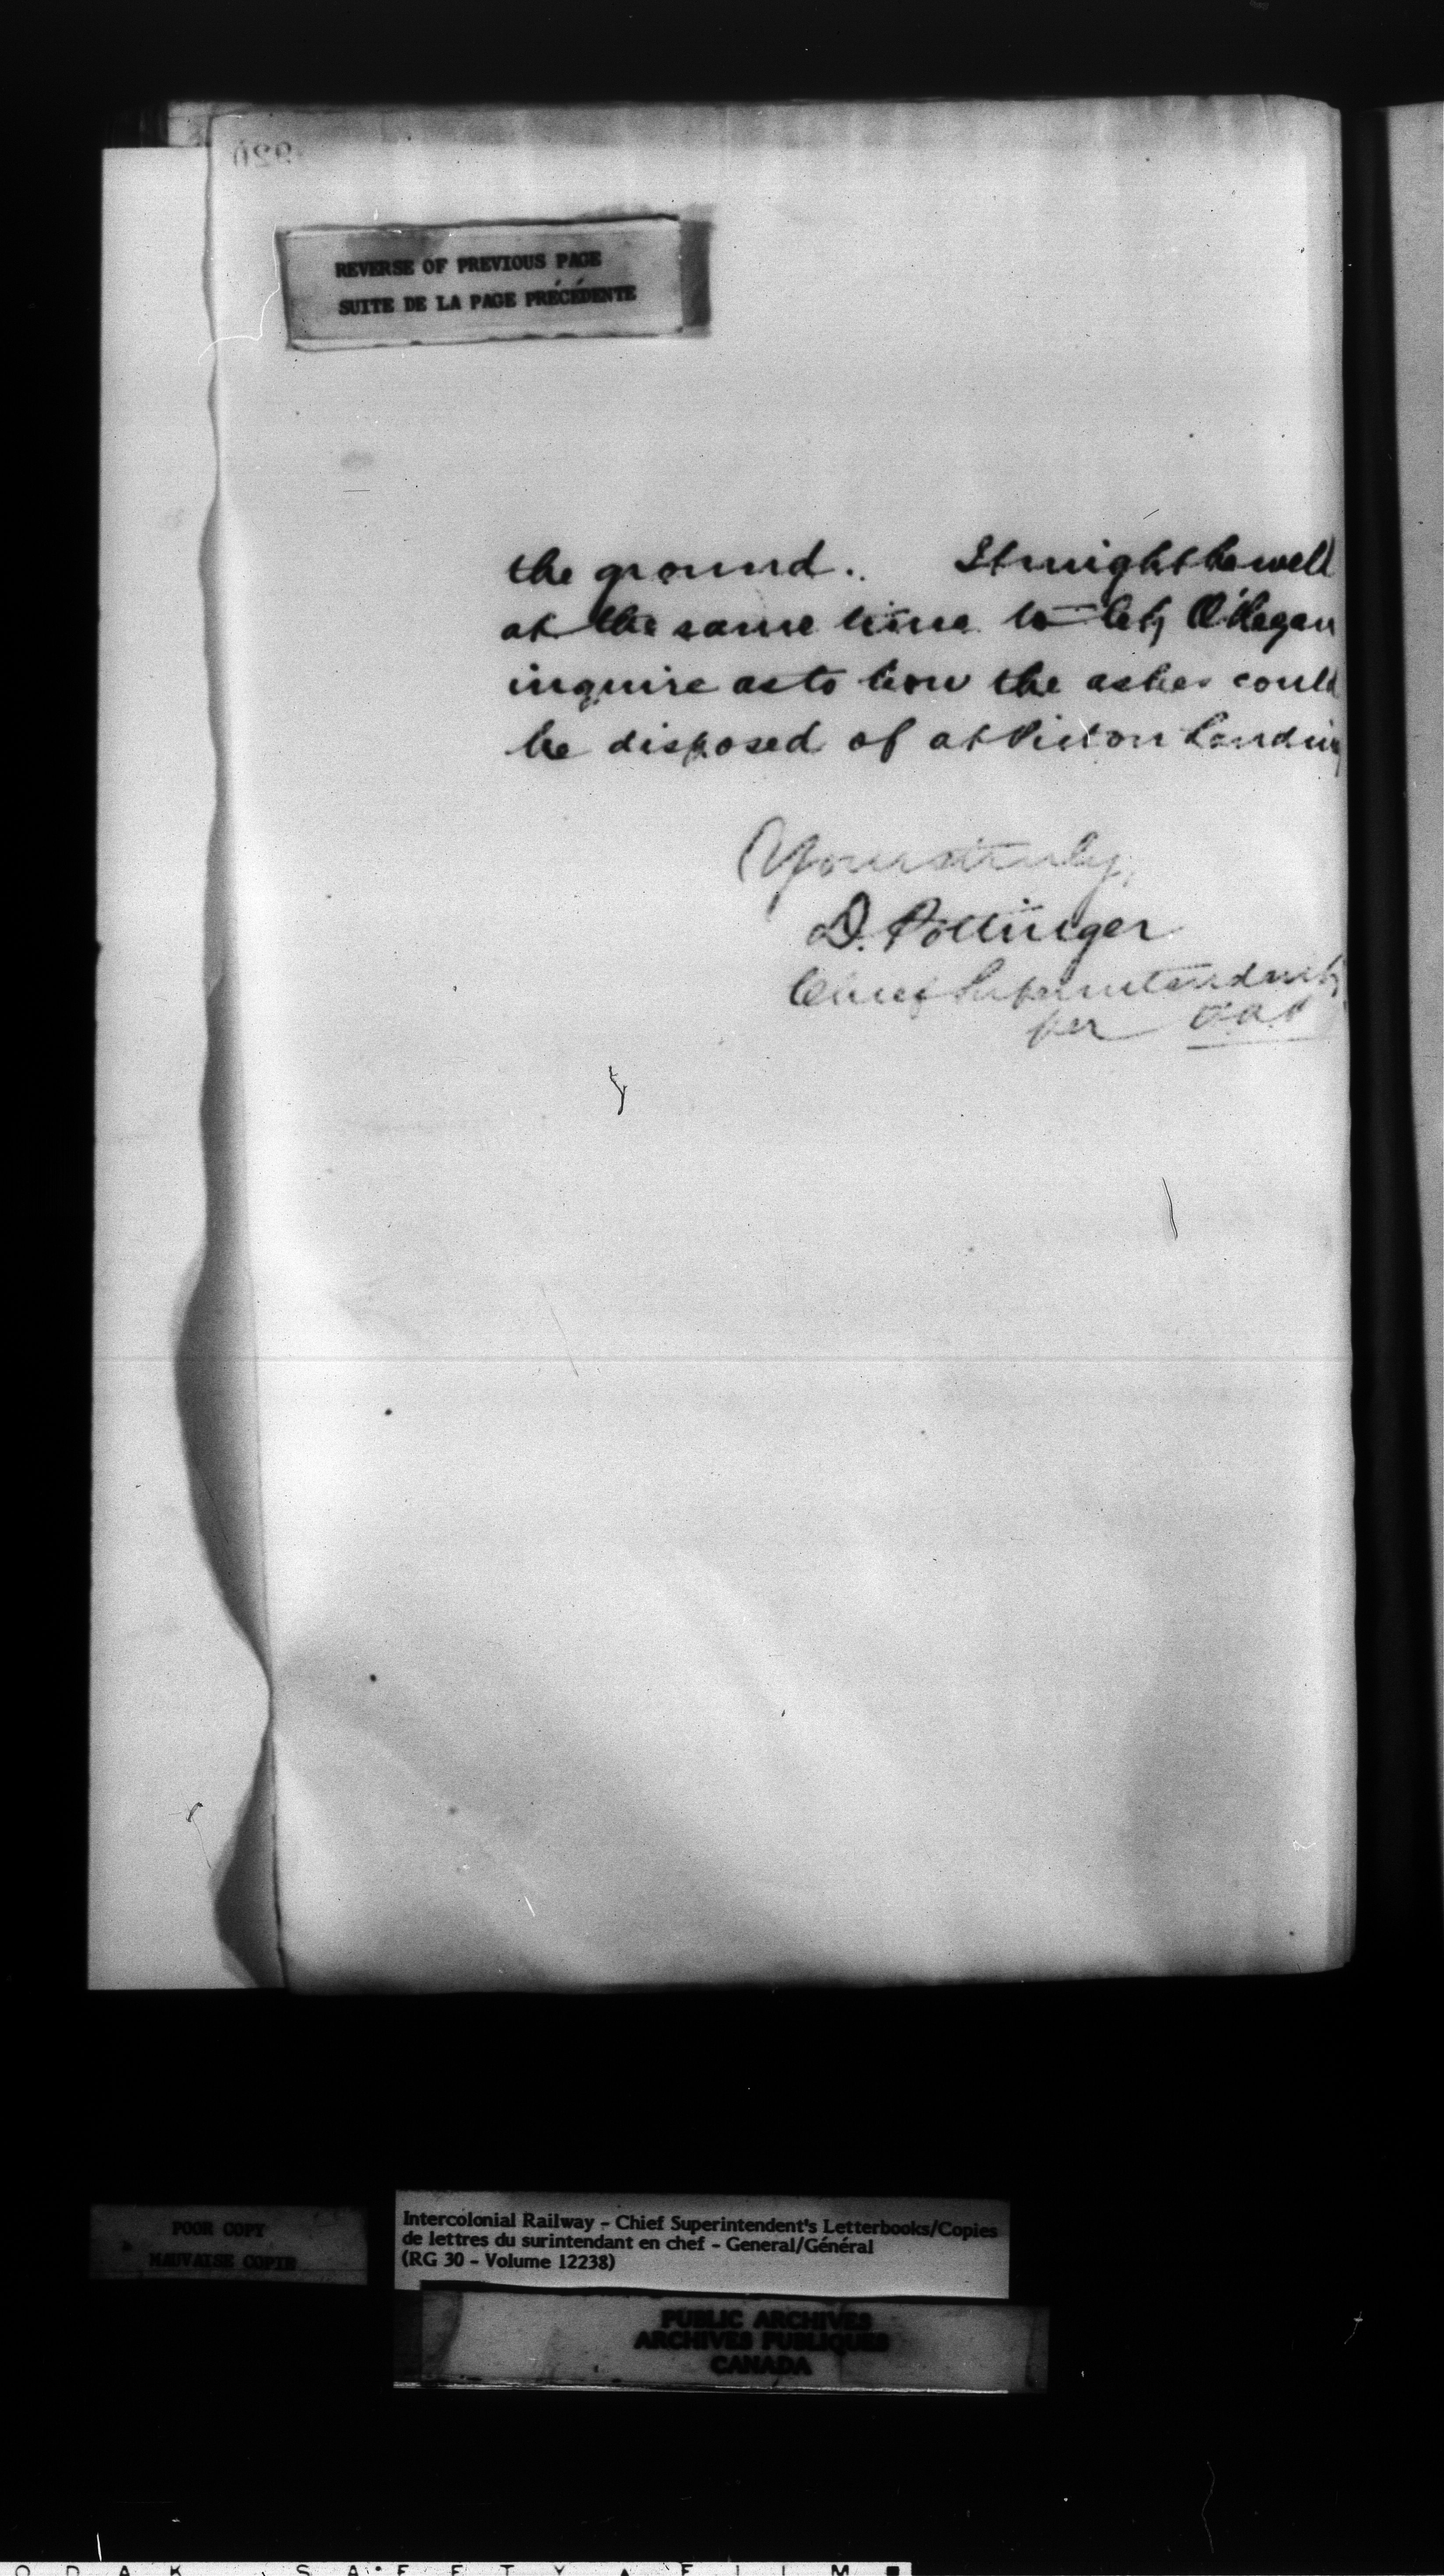 920
REVERSE OF PREVIOUS PAGE
SUITE DE LA PAGE PRÉCÉDENTE
the ground. It might be well
at the same time to let O'Regan
inquire as to how the ashes could
be disposed of at Pictou Landing
Yours truly,
D. Pottinger
Chief Superintendent
per
POOR COPY
MAUVAISE COPIE
Intercolonial Railway - Chief Superintendent's Letterbooks/Copies
de lettres du surintendant en chef - General/Général
(RG 30 - Volume 12238)
PUBLIC ARCHIVES
ARCHIVES PUBLIQUES
CANADA
O D A K S A F E T Y F I L M